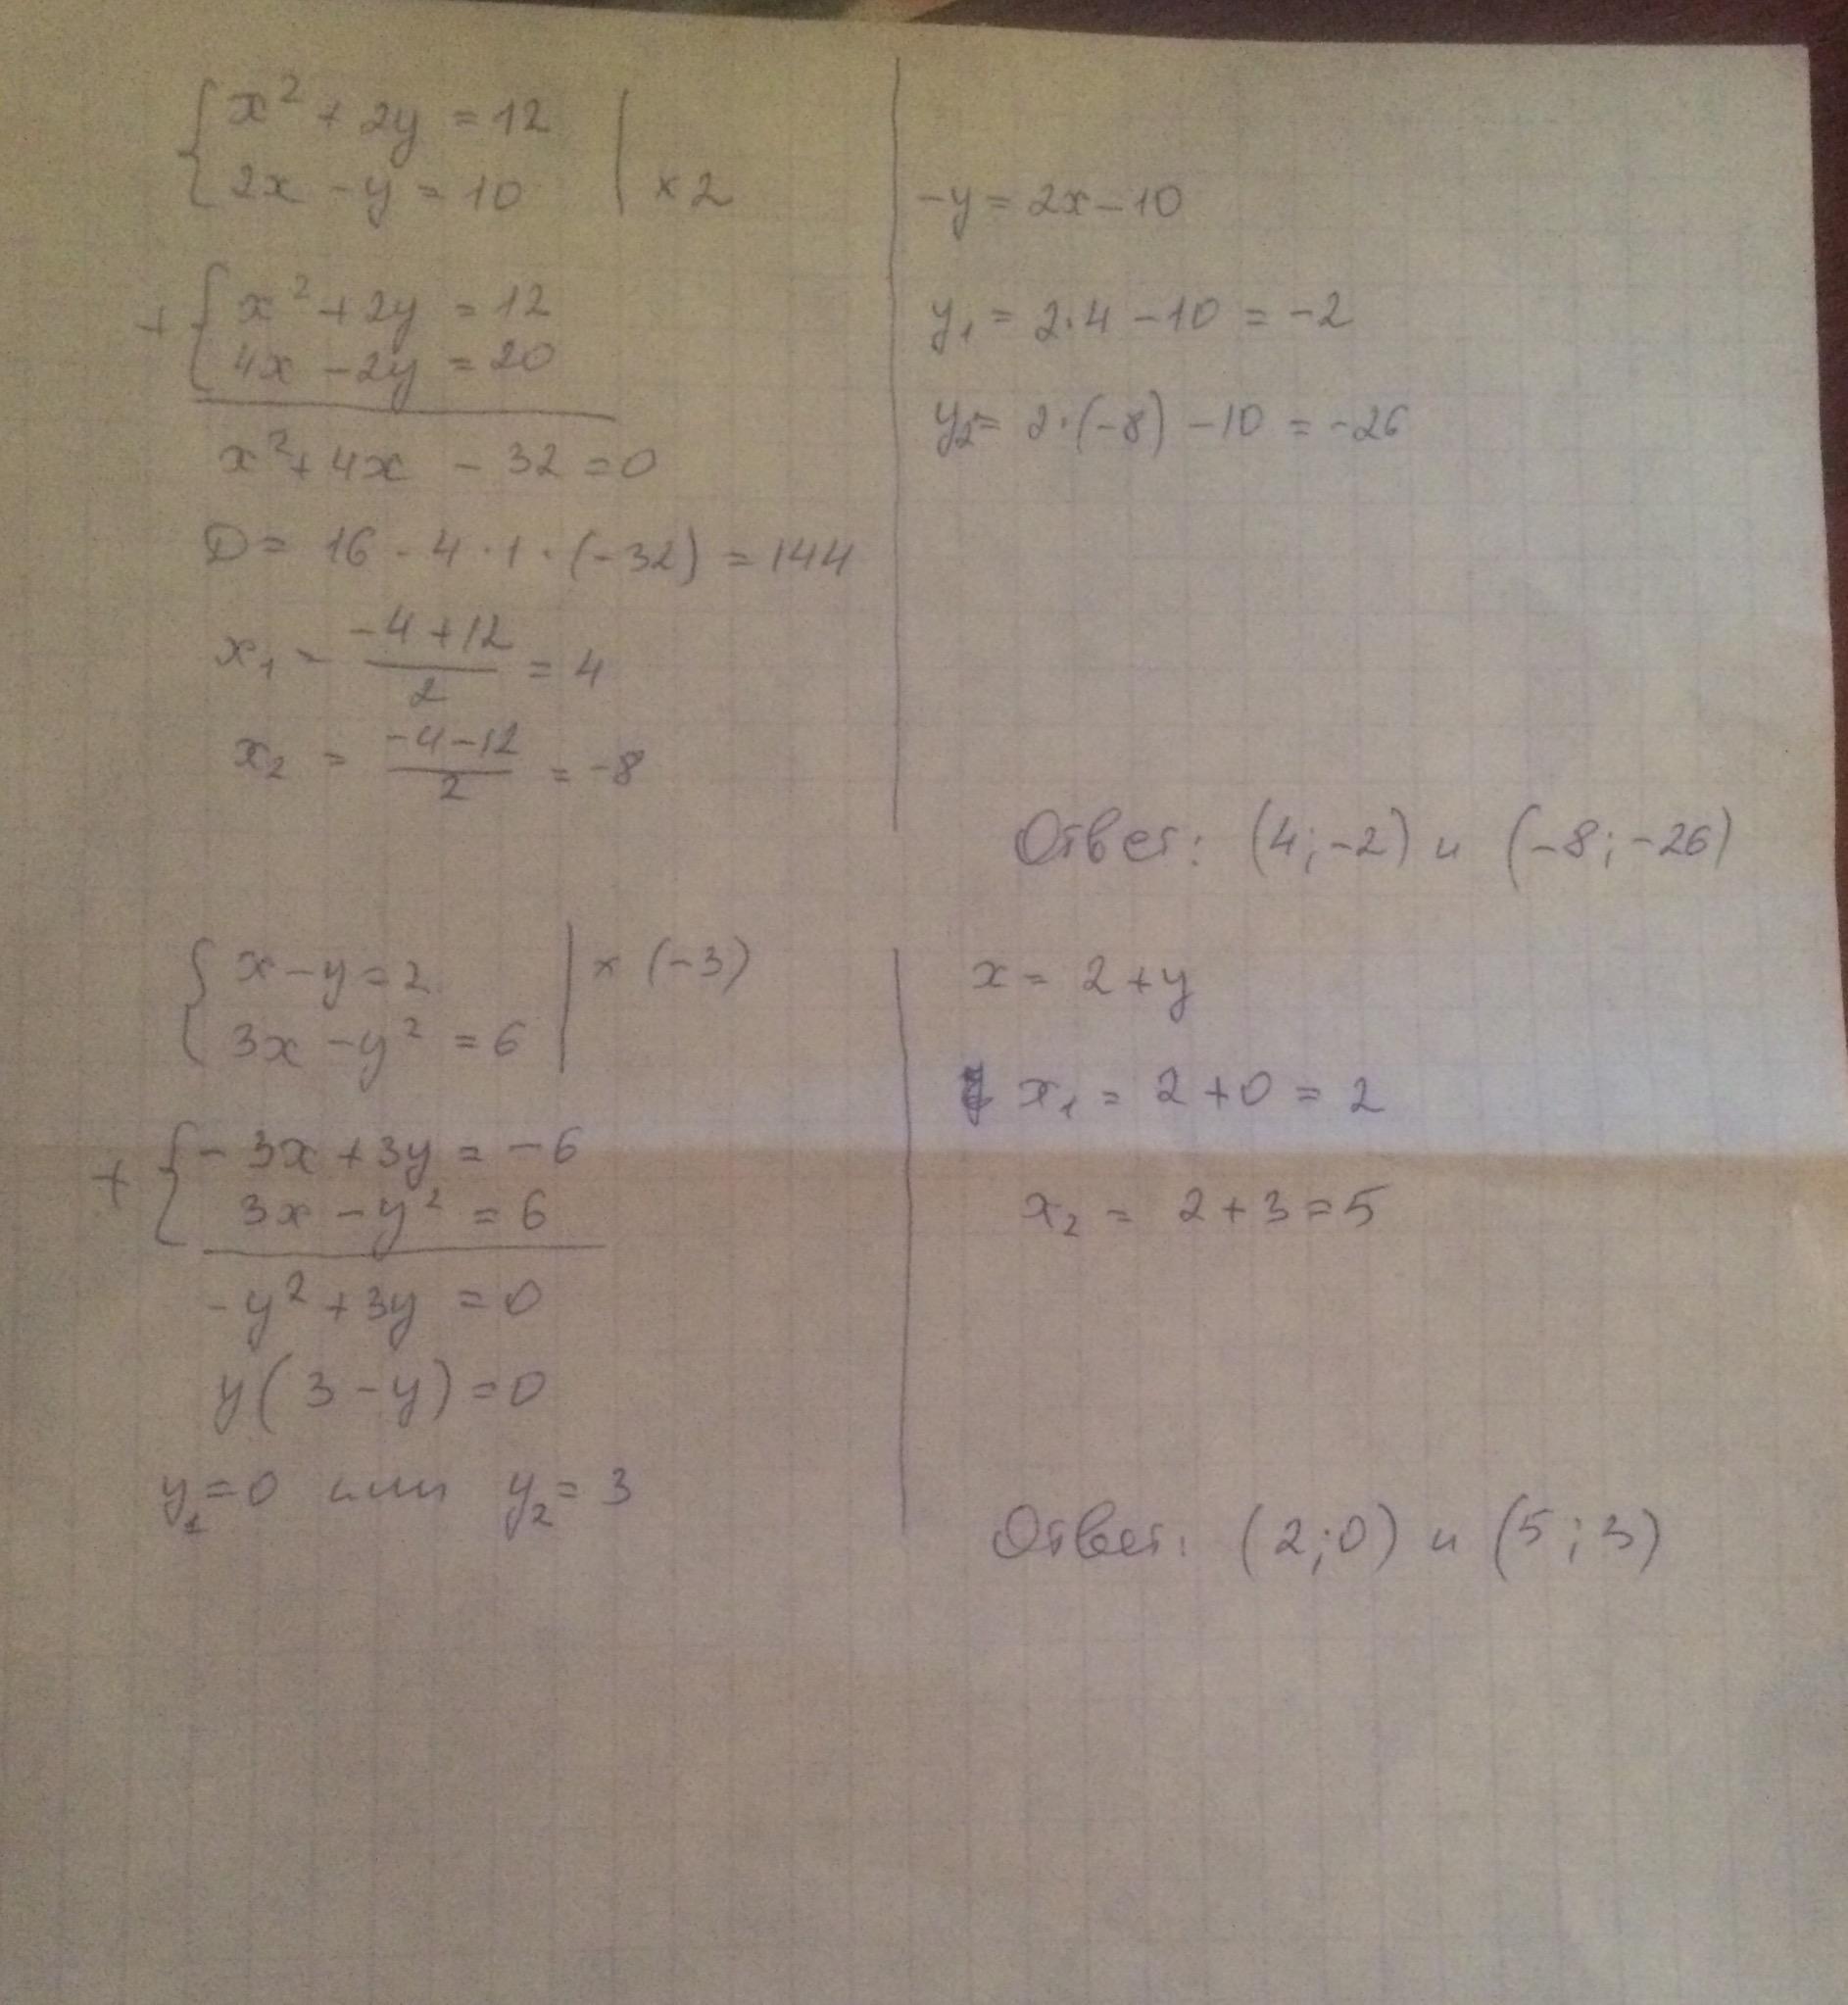 { x² + 2y = 12
{ 2x - y = 10 | × 2
+ { x² + 2y = 12
{ 4x - 2y = 20
x² + 4x - 32 = 0
D = 16 - 4 · 1 · (-32) = 144
x₁ - (-4 + 12)/2 = 4
x₂ = (-4 - 12)/2 = -8
-y = 2x - 10
y₁ = 2·4 - 10 = -2
y₂ = 2·(-8) - 10 = -26
Ответ: (4; -2) и (-8; -26)
{ x - y = 2 | × (-3)
{ 3x - y² = 6
+ { - 3x + 3y = - 6
{ 3x - y² = 6
- y² + 3y = 0
y(3 - y) = 0
y₁ = 0 или y₂ = 3
x = 2 + y
x₁ = 2 + 0 = 2
x₂ = 2 + 3 = 5
Ответ: (2; 0) и (5; 3)